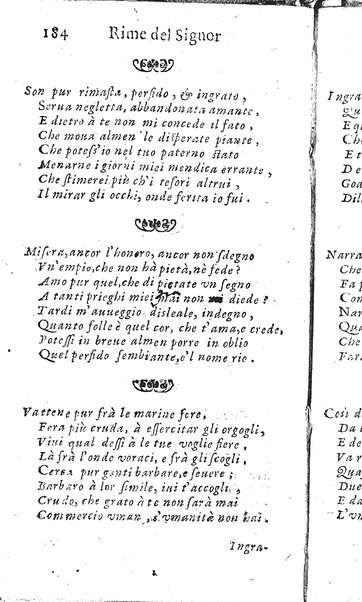 184 Rime del Signor
Son pur rimaſta, perfido, & ingrato,
Serua negletta, abbandonata amante,
E dietro à te non mi concede il fato,
Che moua almen'le diſperate piante,
Che poteſſ'io nel tuo paterno ſtato
Menarne i giorni miei mendica errante,
Che ſtimerei più ch'i teſori altrui,
Il mirar gli occhi, onde ferita io fui.
Miſera, ancor l'honoro, ancor non ſdegno
Vn'empio, che non hà pietà, nè fede?
Amo pur quel, che di pietate vn ſegno
A tanti prieghi miei mai non mi diede?
Tardi m'auueggio disleale, indegno,
Quanto folle è quel cor, che t'ama, e crede,
Poteſſi in breue almen porre in oblio
Quel perfido ſembiante, e'l nome rio.
Vattene pur frà le marine fere,
Fera più cruda, à eſſercitar gli orgogli,
Viui qual deſſi à le tue voglie fiere,
Là frà l'onde voraci, e frà gli ſcogli,
Cerca pur ganti barbare, e ſeuere;
Barbaro à lor ſimile, iui t'accogli,
Crudo, che grato à te non ſarà mai
Commercio vman, s'vmanità non hai.
Ingra-
Ingra
Qu
E q
Che
E
D e
Goa
D i
Narra
Che
Fa p
Con
Nar
Qua
Che
Far
Così d
Da l
E de
Va
Qua
Dei
E da
L'vn